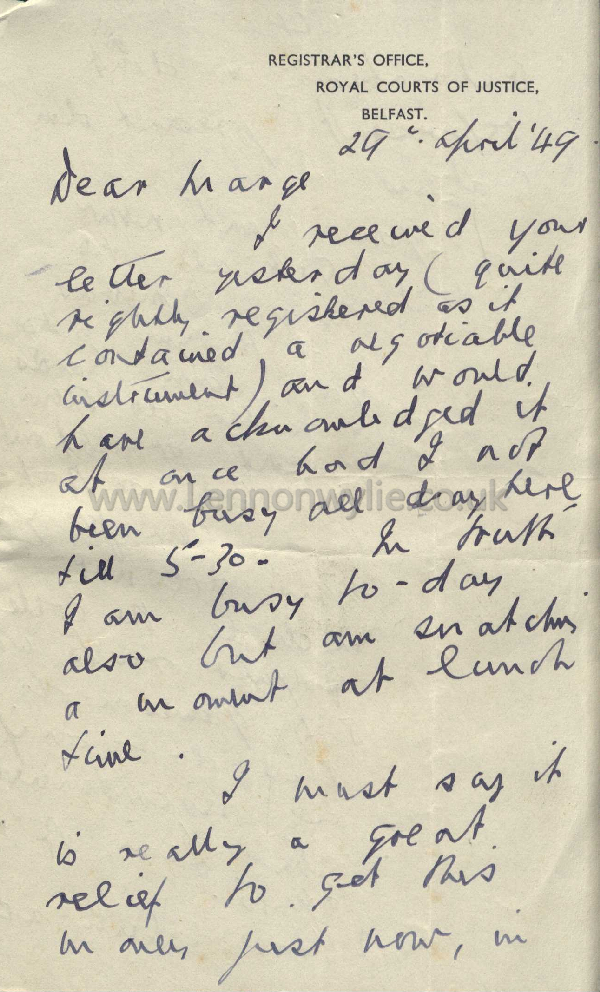 REGISTRAR'S OFFICE,
ROYAL COURTS OF JUSTICE,
BELFAST.
29th. April '49.
Dear Marge
I received your
letter yesterday (quite
rightly registered as it
contained a negotiable
instrument) and would
have acknowledged it
at once had I not
www.Lennonwylie.co.uk
been busy all day here
till 5-30. In truth
I am busy to-day
also but am snatching
a moment at lunch
time.
I must say it
is really a great
relief to get this
money just now, in